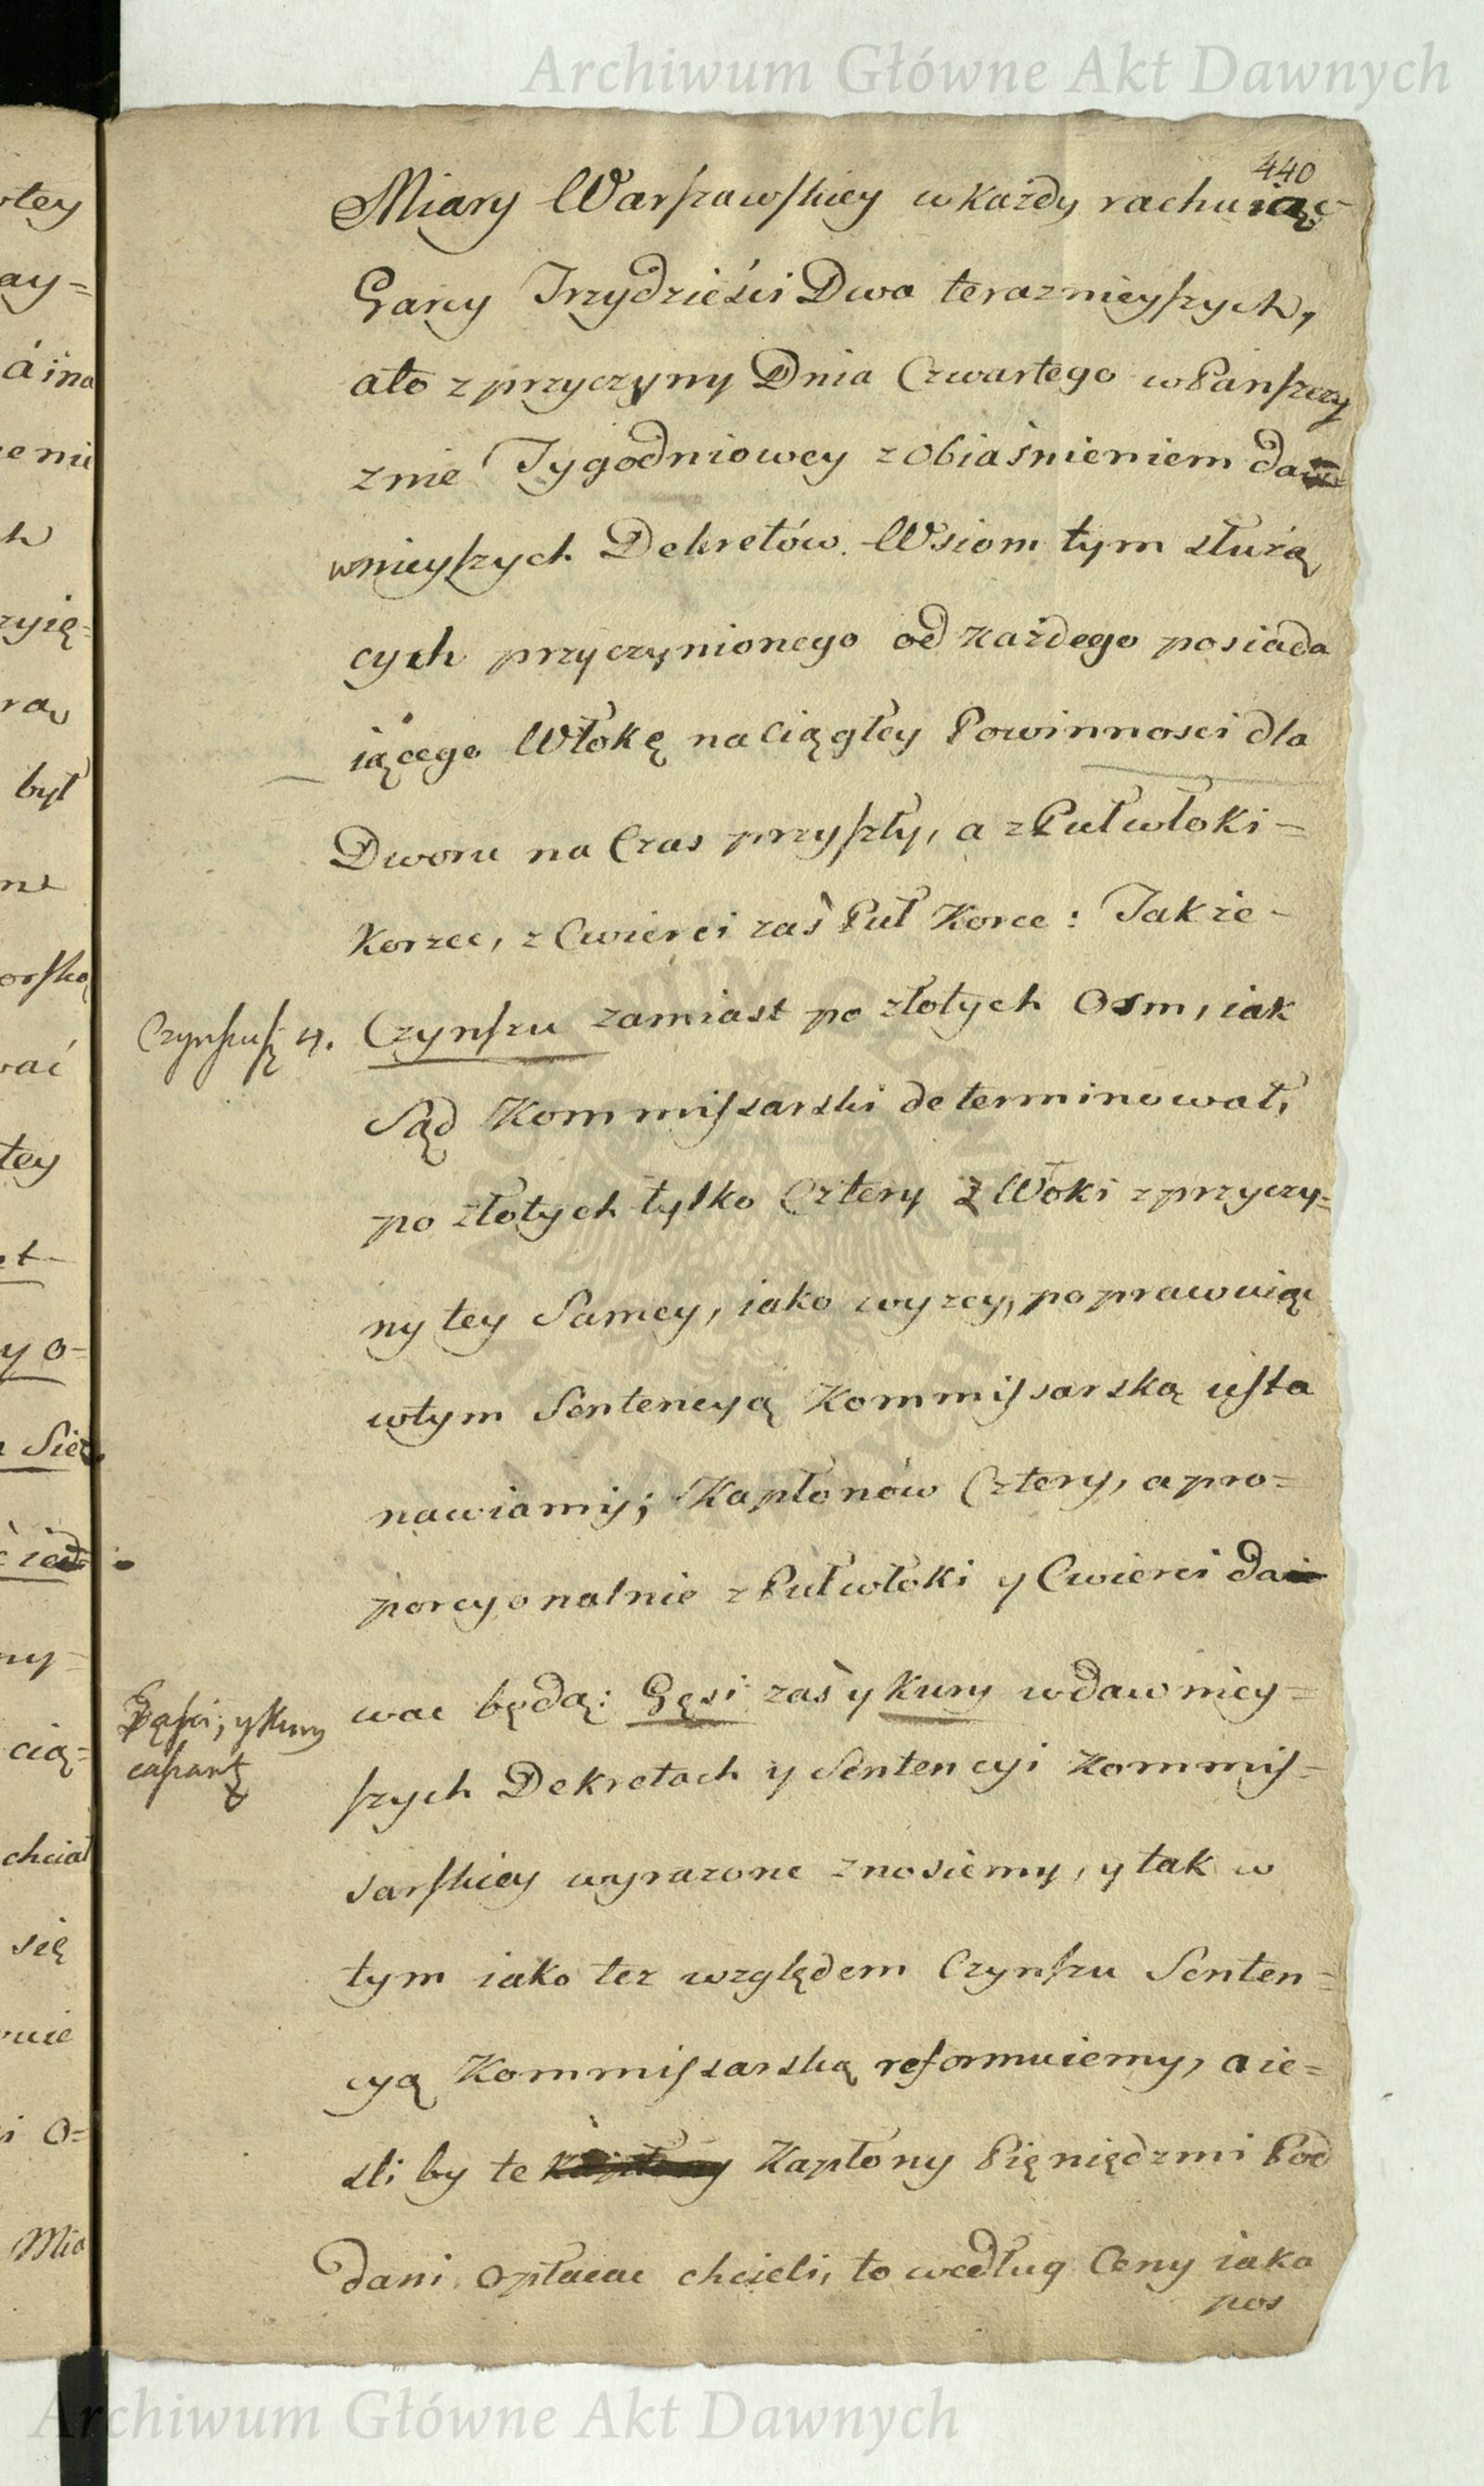 Archiwum Główne Akt Dawnych
440
Miary Warszawskiey w każdy rachuiąc
Garcy Trzydzieści Dwa teraznieyszych,
ato z przyczyny Dnia Czwartego w Panszczy
znie Tygodniowey z obiaśnieniem daw=
wnieyszych Dekretów Wsiom tym służą
cych przyczynionego od każdego posiada
iącego Włokę na ciągłey Powinnosci dla
Dworu na Czas przyszły, a z Puł włoki =
Korzec, z Cwierci zaś Puł Korce: Takze -
Czynszu zamiast po złotych Osm, iak
Sąd Kommissarski determinował,
po złotych tylko Cztery z Woki z przyczy=
ny tey Samey, iako wyzey, poprawuiąc
wtym Sentencyą Kommissarską usta
nawiamy; Kapłonów Cztery, a pro=
porcyonalnie z Puł włoki y Cwierci da
wac będą: Gęsi zaś y Kury w dawniey=
szych Dekretach y Sentencyi Kommis=
sarskiey wyrazone znosiemy, y tak w
tym iako tez względem Czynszu Senten=
cyą Kommissarską reformuiemy, a ie=
sli by te Kapłony Pięniędzmi Pod
dani opłacac chcieli, to według Ceny iako
pos
Czynszus 4.
Gąsci, y Kury
tey
ay=
á ina
h
był
tey
y o=
cią=
chciał
się
i o=
Archiwum Główne Akt Dawnych